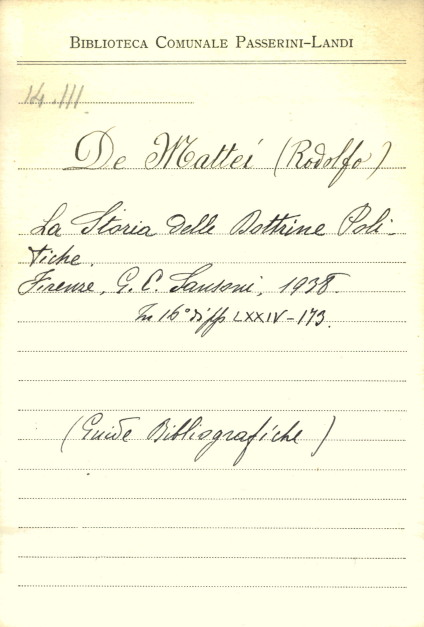 BIBLIOTECA COMUNALE PASSERINI-LANDI
14.III
De Mattei (Rodolfo)
La Storia delle Dottrine Poli-
tiche.
Firenze, G. C. Sansoni, 1938.
In 16° di pp LXXIV-173.
(Guide Bibliografiche)